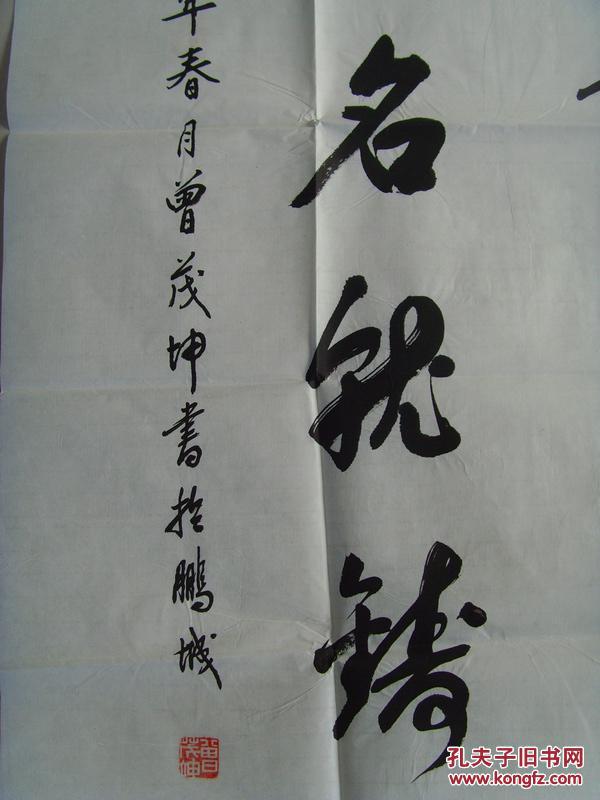 名就铸
年春月曾茂坤書於鵬城
曾茂坤
孔夫子旧书网
www.kongfz.com